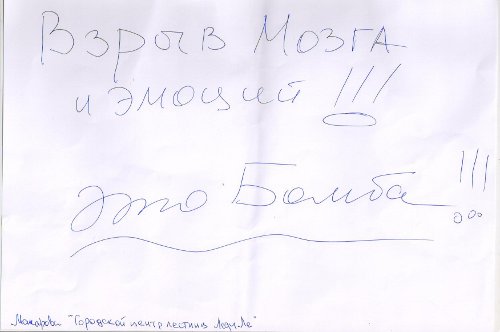 Взрыв Мозга
и эмоций!!!
это Бомба!!!
"Городской центр лестниц Леди Ле"